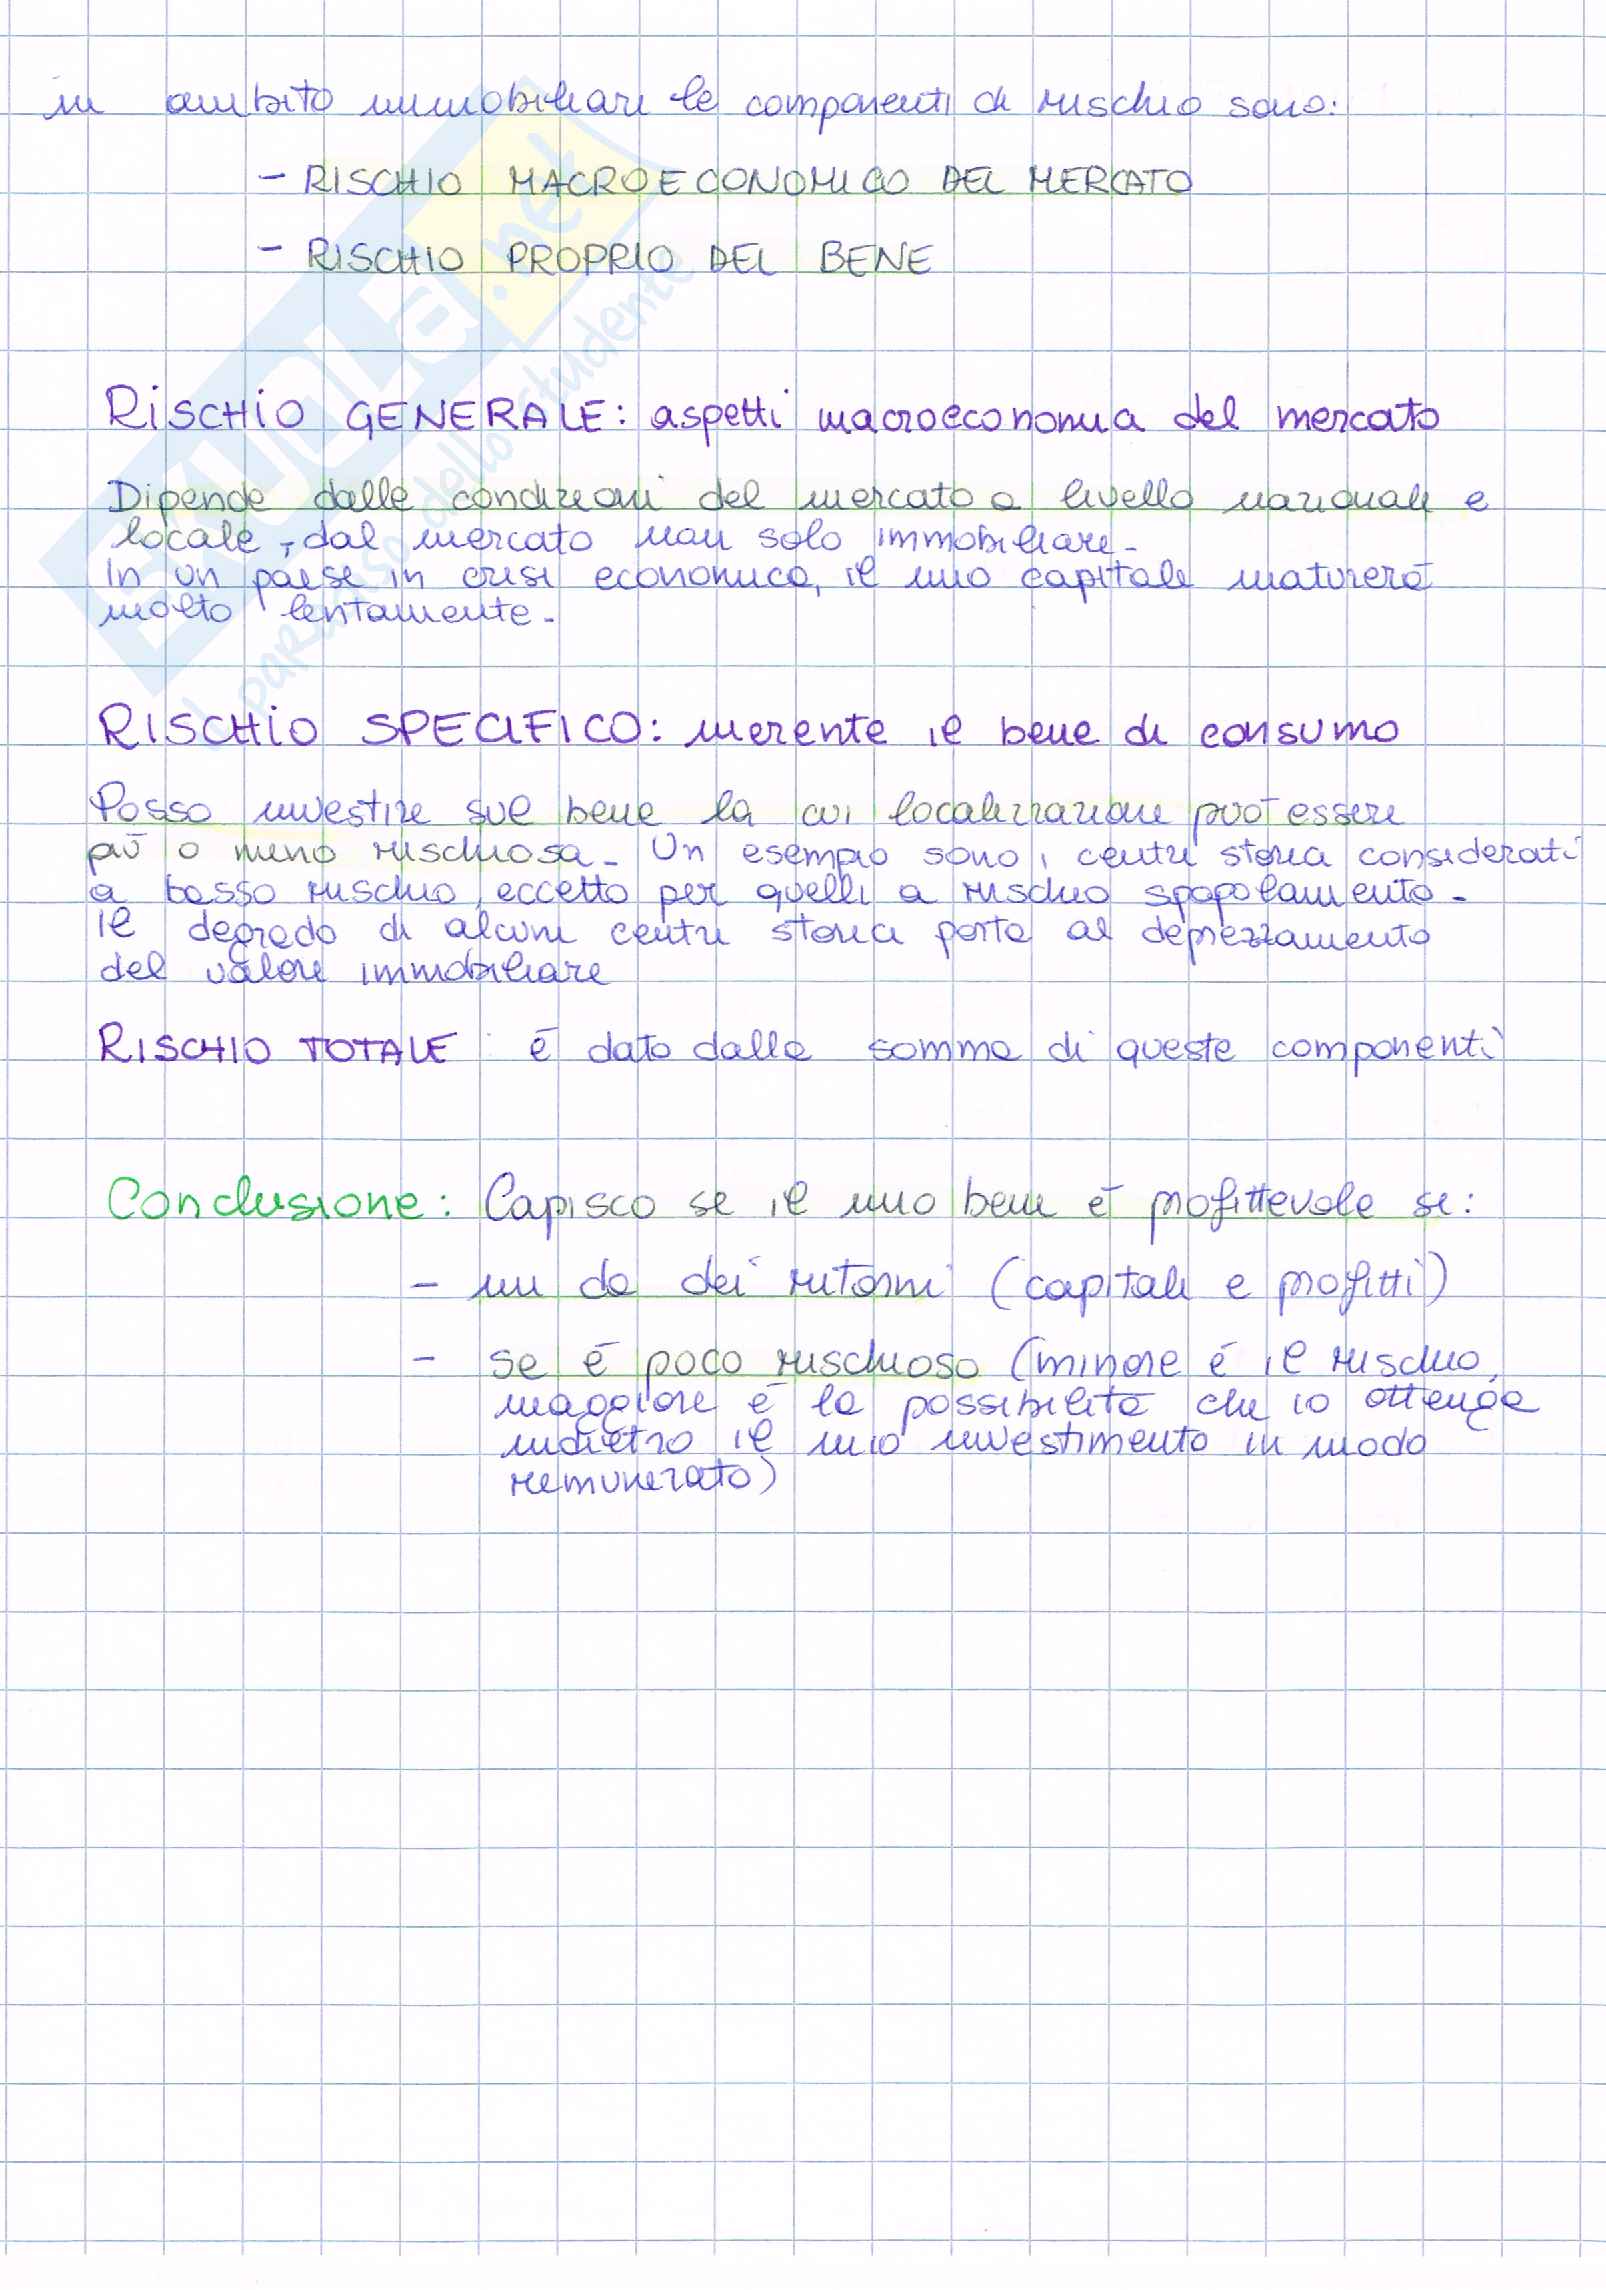 in ambito immobiliare le componenti di rischio sono:
- RISCHIO MACROECONOMICO DEL MERCATO
- RISCHIO PROPRIO DEL BENE
RISCHIO GENERALE: aspetti macroeconomici del mercato
Dipende dalle condizioni del mercato a livello nazionale e
locale, dal mercato non solo immobiliare.
In un paese in crisi economica, il mio capitale maturerà
molto lentamente.
RISCHIO SPECIFICO: inerente il bene di consumo
Posso investire sul bene la cui localizzazione può essere
più o meno rischiosa. Un esempio sono i centri storici considerati
a basso rischio, eccetto per quelli a rischio spopolamento.
Il degrado di alcuni centri storici porta al deprezzamento
del valore immobiliare
RISCHIO TOTALE: è dato dalla somma di queste componenti
Conclusione: Capisco se il mio bene è profittevole se:
- mi da dei ritorni (capitali e profitti)
- se è poco rischioso (minore è il rischio,
maggiore è la possibilità che io ottenga
indietro il mio investimento in modo
remunerato)
SKUOLA.net
il paradiso dello studente